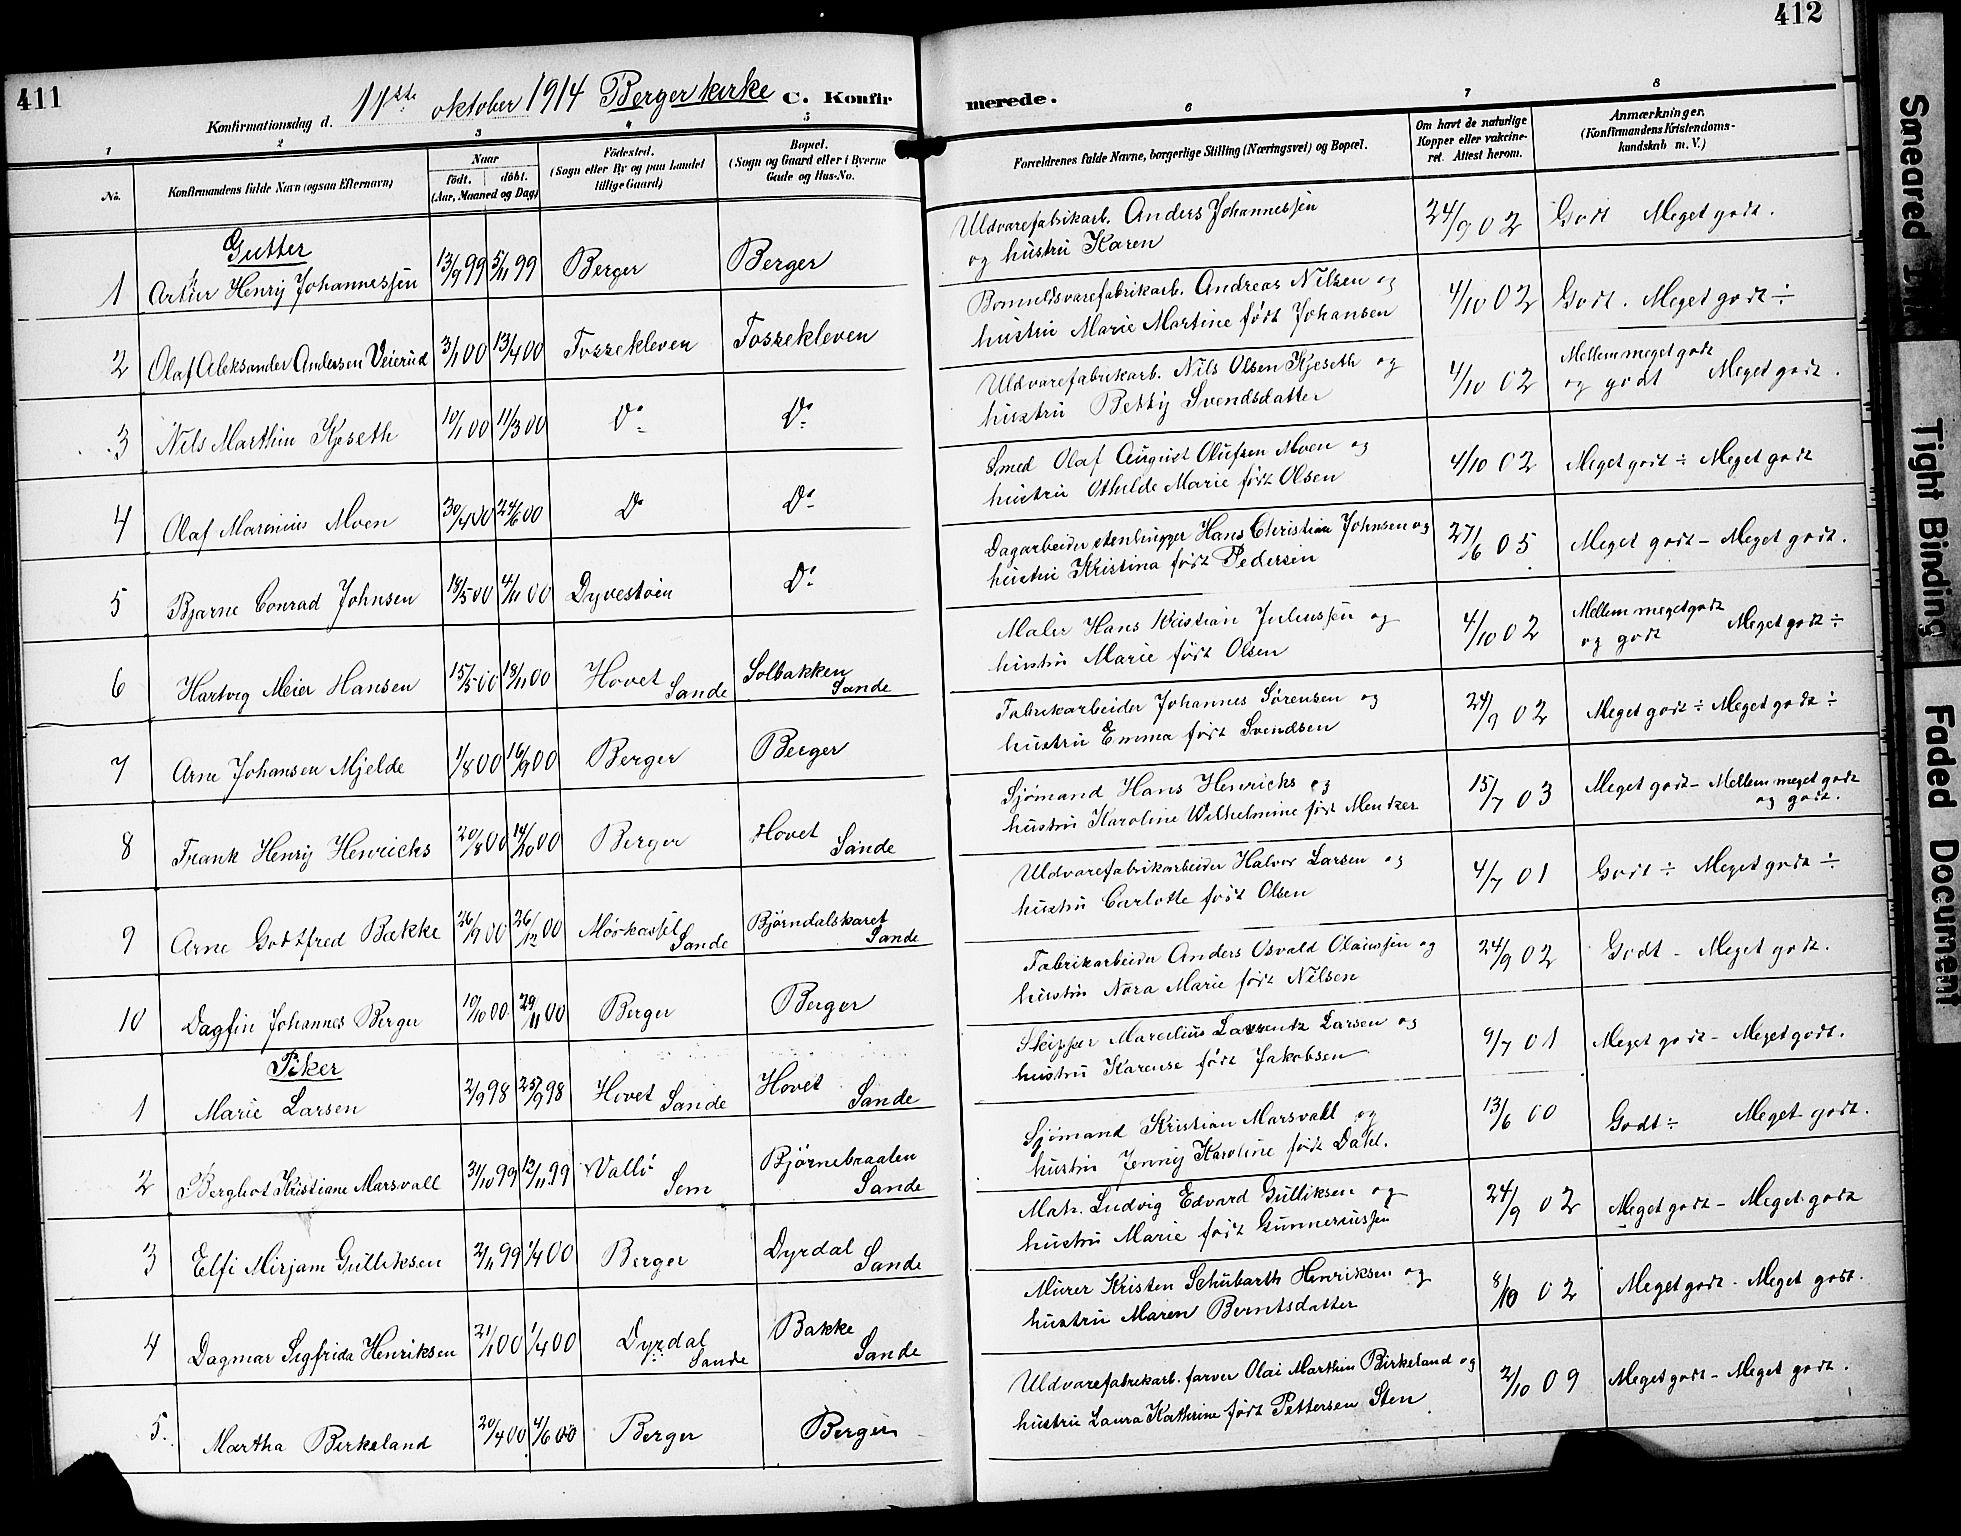 411
Konfirmationsdag d. 11te oktober 1914 Berger kirke C. Konfir
1 2 3 4 5
No. Konfirmandens fulde Navn (ogsaa Efternavn) Naar født. døbt. (Aar, Maaned og Dag) Födested. (Sogn eller By og paa Landet tillige Gaard) Bopæl. (Sogn og Gaard eller i Byerne Gade og Hus-No.
Gutter
1 Artur Henry Johannessen 13/9 99 5/11 99 Berger Berger
2 Olaf Aleksander Andersen Veierud 3/1 00 13/4 00 Fossekleven Fossekleven
3 Nels Marthin Kjeseth 10/1 00 11/3 00 Do Do
4 Olaf Marenius Moen 30/4 00 24/6 00 Do Do
5 Bjarne Conrad Johnsen 18/5 00 4/11 00 Dyvestöen Do
6 Hartvig Meier Hansen 15/5 00 18/11 00 Hovet Sande Solbakken Sande
7 Arne Johansen Mjelde 1/8 00 16/9 00 Berger Berger
8 Frank Henry Henrichs 20/8 00 14/10 00 Berger Hovet Sande
9 Arne Godtfred Bakke 26/9 00 26/12 00 Mörkassel Sande Björndalskaret Sande
10 Dagfin Johannes Berger 10/10 00 29/11 00 Berger Berger
Piker
1 Marie Larsen 2/9 98 25/9 98 Hovet Sande Hovet Sande
2 Berghot Kristiane Marsvall 31/10 99 12/11 99 Vallö Sem Bjørnebraaten Sande
3 Elfi Mirjam Gulliksen 2/11 99 1/4 00 Berger Dyrdal Sande
4 Dagmar Sigfrida Henriksen 21/1 00 1/4 00 Dyrdal Sande Bakke Sande
5. Martha Birkeland 20/4 00 4/6 00 Berger Berger
412
merede.
6 7 8
Forældrenes fulde Navne, borgerlige Stilling (Næringsvei) og Bopæl. Om havt de naturlige Kopper eller vakcineret. Attest herom. Anmærkninger. (Konfirmandens Kristendomskundskab m. V.)
Uldvarefabrikarb. Anders Johannessen
og hustru Karen 24/9 02 Godt Meget godt.
Bomuldsvarefabrikarb. Andreas Nilsen og
hustru Marie Martine født Johansen 4/10 02 Godt. Meget godt ÷
Uldvarefabrikarb. Nils Olsen Kjeseth og
hustru Betty Svendsdatter 4/10 02 Mellem meget godt og godt Meget godt.
Smed Olaf August Olufsen Moen og
hustru Othilde Marie født Olsen 4/10 02 Meget godt ÷ Meget godt
Dagarbeider stenhugger Hans Christian Johnsen og
hustru Kristina født Pedersen 27/6 05 Meget godt - Meget godt.
Maler Hans Kristian Juliussen og
hustru Marie født Olsen 4/10 02 Mellem meget godt og godt Meget godt ÷
Fabrikarbeider Johannes Sørensen og
hustru Emma født Svendsen 24/9 02 Meget godt ÷ Meget godt ÷
Sjömand Hans Henrichs og
hustru Karoline Wilhelmine født Mentzer 15/7 03 Meget godt - Mellem meget godt og godt.
Uldvarefabrikarbeider Halvor Larsen og
hustru Carlotte født Olsen 4/7 01 Godt ÷ Meget godt ÷
Fabrikarbeider Anders Osvald Olaussen og
hustru Nora Marie født Nilsen 24/9 02 Godt - Meget godt.
Skipper Marcelius Laurentz Larsen og
hustru Karense født Jakobsen 9/7 01 Meget godt - Meget godt.
Sjömand Kristian Marsvall og
hustru Jenny Karoline født Dahl. 13/6 00 Godt ÷ Meget godt.
Matr. Ludvig Edvard Gulliksen og
hustru Marie født Gunneriussen 24/9 02 Meget godt - Meget godt
Murer Kristen Schubarth Henriksen og
hustru Maren Berntsdatter 8/10 02 Meget godt - Meget godt.
Uldvarefabrikarb. farver Olai Marthin Birkeland og
hustru Laura Kathrine født Pettersen Sten 2/10 09 Meget godt - Meget godt.
Smeared
Tight Binding
Faded Document